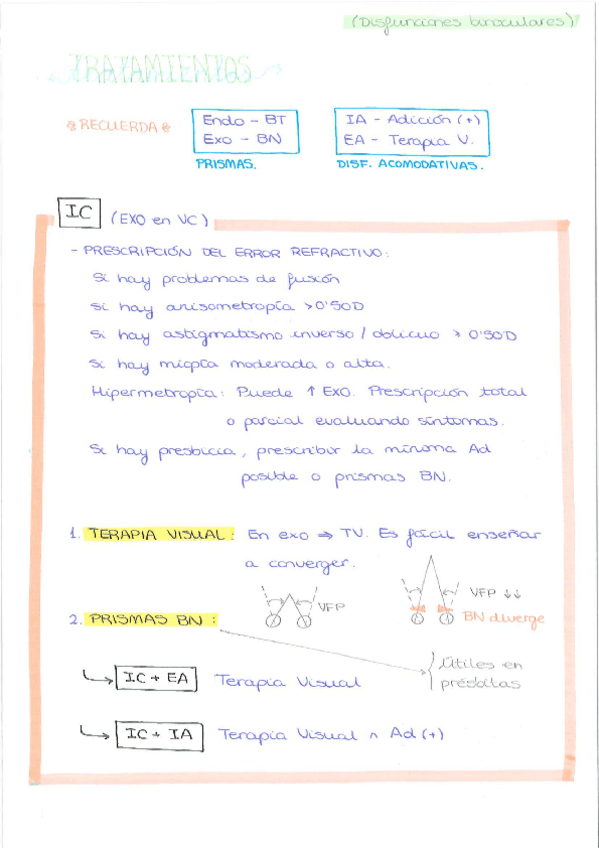 (Disfunciones binoculares)
TRATAMIENTOS
RECUERDA
Endo - BT
Exo - BN
PRISMAS.
IA - Adición (+)
EA - Terapia V.
DISF. ACOMODATIVAS.
IC (EXO en VC)
- PRESCRIPCIÓN DEL ERROR REFRACTIVO:
Si hay problemas de fusión
si hay anisometropía >0'50D
Si hay astigmatismo inverso / oblicuo > 0'50D
Si hay miopía moderada o alta.
Hipermetropía: Puede ↑ EXO. Prescripción total
o parcial evaluando síntomas.
Si hay presbicia, prescribir la mínima Ad
posible o prismas BN.
1. TERAPIA VISUAL: En exo ⇒ TV. Es fácil enseñar
a converger.
VFP
VFP ↓↓
BN diverge
2. PRISMAS BN:
Útiles en
présbitas
IC + EA Terapia Visual
IC + IA Terapia Visual ∧ Ad (+)